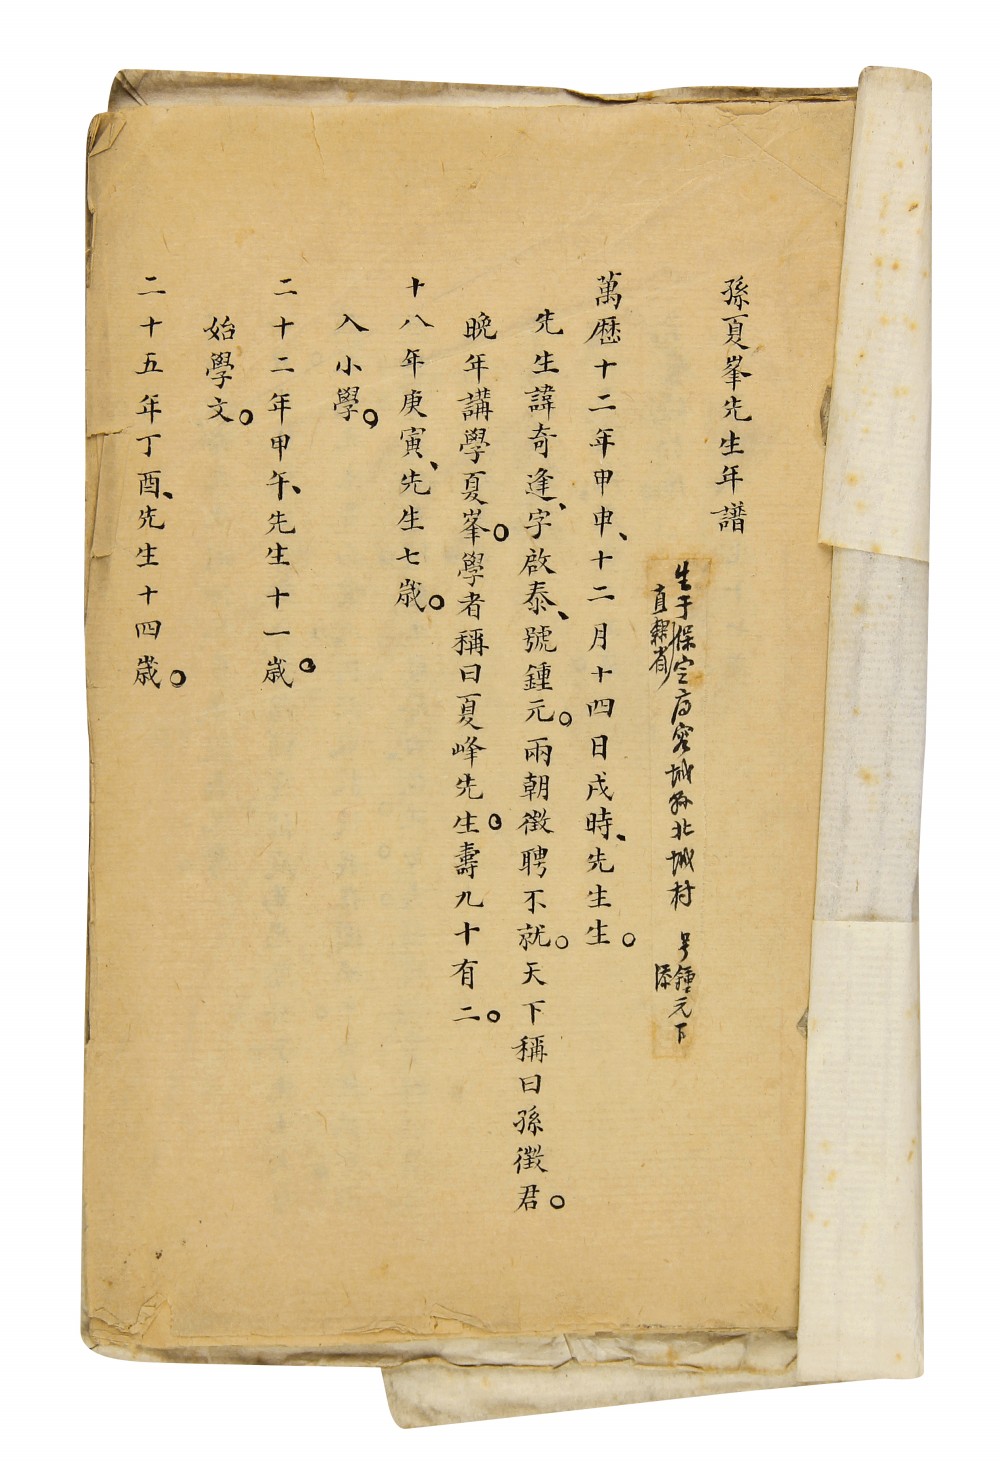 孫夏峯先生年譜
生于保定府容城縣北城村 号鍾元下
直隸省 添
萬曆十二年甲申、十二月十四日戌時、先生生。
先生諱奇逢、字啟泰、號鍾元。兩朝徵聘不就。天下稱曰孫徵君。
晚年講學夏峯。學者稱曰夏峰先生。壽九十有二。
十八年庚寅、先生七歲。
入小學。
二十二年甲午、先生十一歲。
始學文。
二十五年丁酉、先生十四歲。